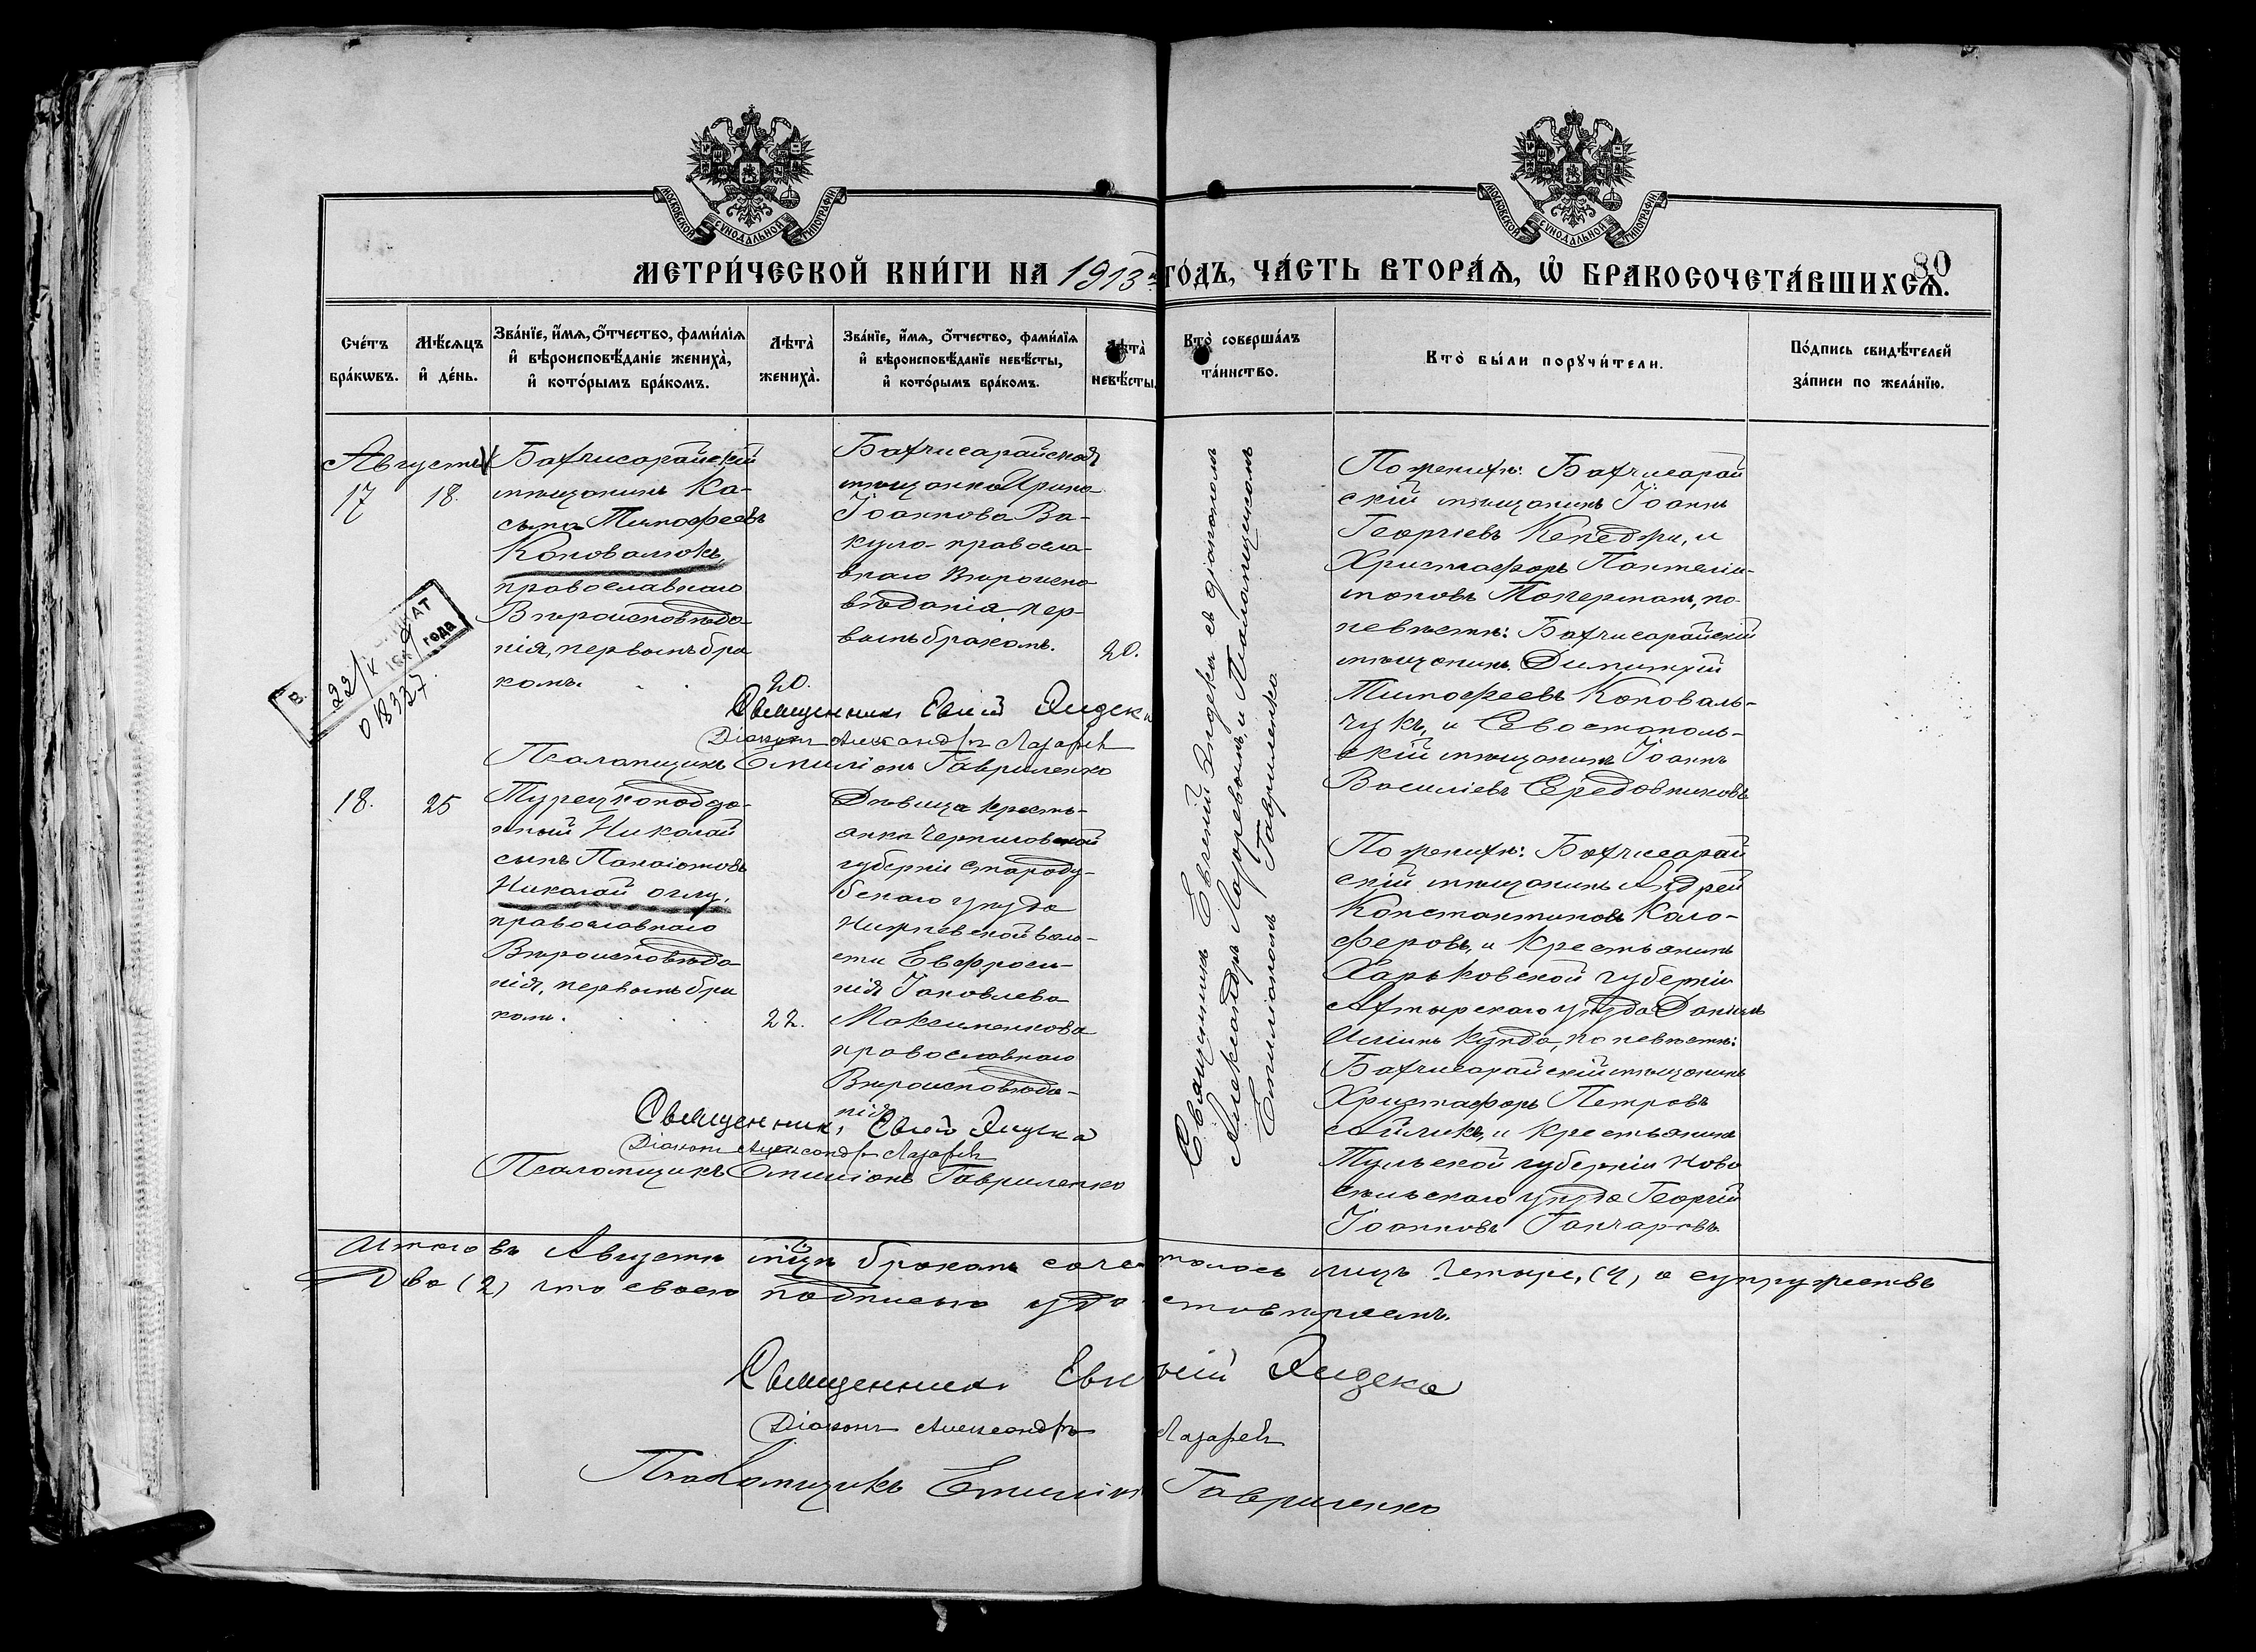 МОСКОВСКОЙ СѴНОДАЛЬНОЙ ТИПОГРАФІИ
МОСКОВСКОЙ СѴНОДАЛЬНОЙ ТИПОГРАФІИ
80
МЕТРИ́ЧЕСКОЙ КНИ́ГИ НА 1913й ГО́ДЪ, ЧА́СТЬ ВТОРА́Ѧ, Ѡ҆ БРАКОСОЧЕТА́ВШИХСѦ.
Сче́тъ бра́кѡвъ.
Мѣ́сѧцъ и҆ де́нь.
Зва́нїе, и҆́мѧ, ѻ҆́тчество, фами́лїѧ
и҆ вѣроисповѣ́данїе жениха̀,
и҆ кото́рымъ бра́комъ.
Лѣта̀ жениха̀.
Зва́нїе, и҆́мѧ, ѻ҆́тчество, фами́лїѧ
и҆ вѣроисповѣ́данїе невѣ́сты,
и҆ кото́рымъ бра́комъ.
Лѣта̀ невѣ́сты.
Кто̀ соверша́лъ та́инство.
Кто̀ бы́ли порꙋчи́тели.
По́дпись свидѣ́телей за́писи по жела́нїю.
Августъ
17
18.
Бахчисарайскій
мѣщанинъ Ка-
Тимофеевъ
Коновалюкъ,
православнаго
Вѣроисповѣда
нія, первымъ бра
комъ.
20.
Бахчисарайская
мѣщанка Ирина
Іоаннова Ва-
кула- правосла-
внаго Вѣроиспо
вѣданія, пер-
вымъ бракомъ.
20.
Священникъ Евгеній Яндека съ діакономъ
Александръ Лазаревымъ, и Псаломщикомъ
Емиліаномъ Гавриленко
По женихѣ: Бахчисарай
скій мѣщанинъ Іоаннъ
Георгіевъ Кепеджи, и
Христофоръ Пантелей-
моновъ Топерманъ, по
невѣстѣ: Бахчисарайскій
мѣщанинъ Димитрій
Тимофеевъ Коноваль-
чукъ, и Севастополь-
скій мѣщанинъ Іоаннъ
Василіевъ Середовниковъ
В. 22/X года
018327.
Священникъ Евгеній Яндека
Діаконъ Александръ Лазаревъ
Псаломщикъ Емиліанъ Гавриленко
18.
25
Турецкоподда-
нный Николай
сынъ Панаіотовъ
Николай оглу,
православнаго
Вѣроисповѣда
нія, первымъ бра
комъ.
22.
Дѣвица кресть-
янка Черниговской
губерніи Староду-
бскаго уѣзда
воло-
сти Евфроси-
нія Іаковлева
Максименкова
православнаго
Вѣроисповѣда-
нія
По женихѣ: Бахчисарай
скій мѣщанинъ Андрей
Константиновъ Кало-
феровъ, и крестьянинъ
Харьковской губерніи
Ахтырскаго уѣзда Даніилъ
Иліинъ Кунда, по невѣстѣ:
Бахчисарайскій мѣщанинъ
Христофоръ Петровъ
Айликъ, и крестьянинъ
Тульской губерніи Ново
сильскаго уѣзда Георгій
Іоанновъ Ганчаровъ.
Священникъ, Евгеній Яндека
Діаконъ Александръ Лазаревъ
Псаломщикъ Емиліанъ Гавриленко
Итого въ Августѣ мѣцѣ бракомъ сочеталось лицъ четыре, (4) а супружествъ
Два (2) что своею подписью удостовѣряемъ.
Священникъ Евгеній Яндека
Діаконъ Александръ Лазаревъ
Псаломщикъ Емиліанъ Гавриленко